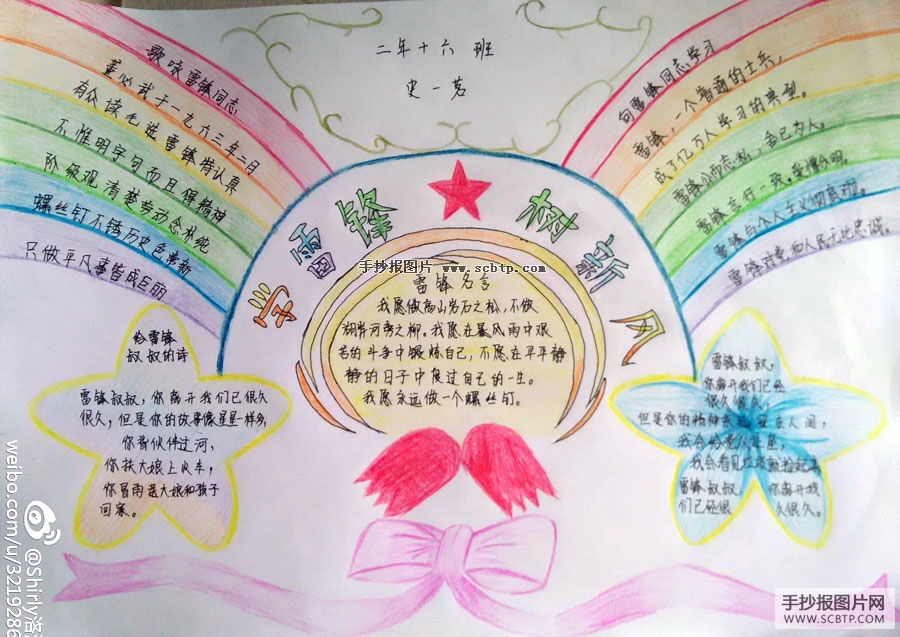 二年十六班
史一茗
歌咏雷锋同志
董必武于一九六三年二月
有众读毛选雷锋特认真
不惟明字句而且得精神
阶级观清楚劳动念林纯
螺丝钉不锈历史色常新
只做平凡事皆成巨丽
向雷锋同志学习
雷锋，一个普通的士兵，
成了亿万人学习的典型。
雷锋公而忘私，舍己为人。
雷锋言行一致，爱憎分明。
雷锋与个人主义彻底
雷锋对党和人民无比忠诚。
学雷锋 树新风
手抄报图片 www.scbtp.com
雷锋名言
我愿做高山岩石之松，不做
湖岸河旁之柳。我愿在暴风雨中艰
苦的斗争中锻炼自己，不愿在平平静
静的日子中度过自己的一生。
我愿永远做一个螺丝钉。
给雷锋
叔叔的诗
雷锋叔叔，你离开我们已很久
很久，但是你的故事像星星一样多，
你背伙伴过河，
你扶大娘上火车，
你冒雨送大娘和孩子
回家。
雷锋叔叔，
你离开我们已经
很久很久，
但是你的精神永远留在人间，
我会给花儿
我会看见垃圾就捡起来
雷锋叔叔， 你离开我
们已经很 久很久。
weibo.com/u/3219286
@Shirly洛
手抄报图片网
WWW.SCBTP.COM